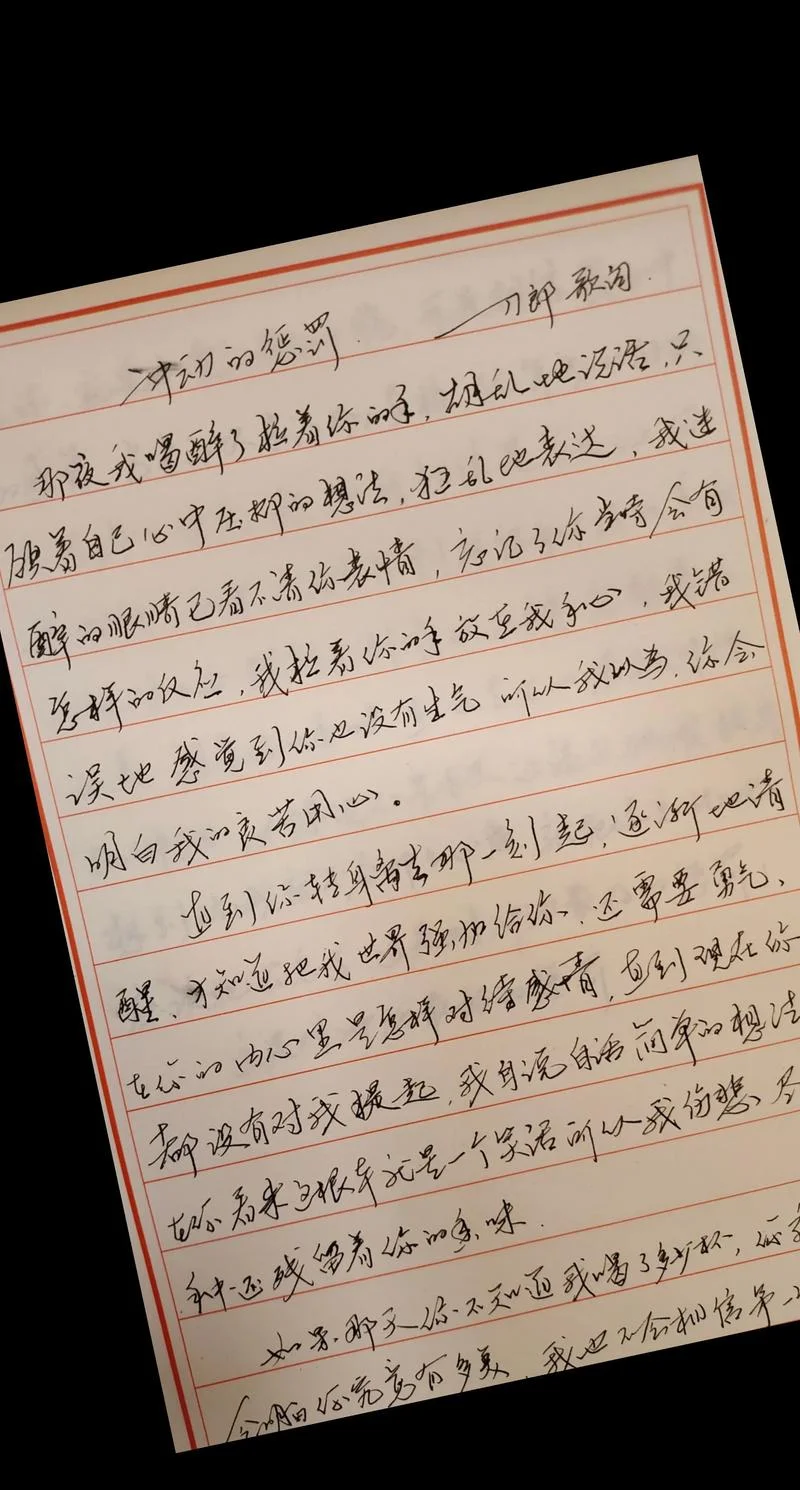 冲动的惩罚 ——刀郎 歌词.
那夜我喝醉了拉着你的手，胡乱地说话，只
顾着自己心中压抑的想法，狂乱地表达，我迷
醉的眼睛已看不清你表情，忘记了你当时会有
怎样的反应，我拉着你的手放在我手心，我错
误地感觉到你也没有生气 所以我以为，你会
明白我的良苦用心。
直到你转身离去那一刻起，逐渐地清
醒、才知道把我世界强加给你、还需要勇气、
在你的内心里是怎样对待感情，直到现在你
都没有对我提起，我自说自话简单的想法
在你看来这根本就是一个笑话所以我伤悲、尽
手中还残留着你的香味.
如果那天你不知道我喝了多少杯，你
会明白你究竟有多美，我也不会相信第一